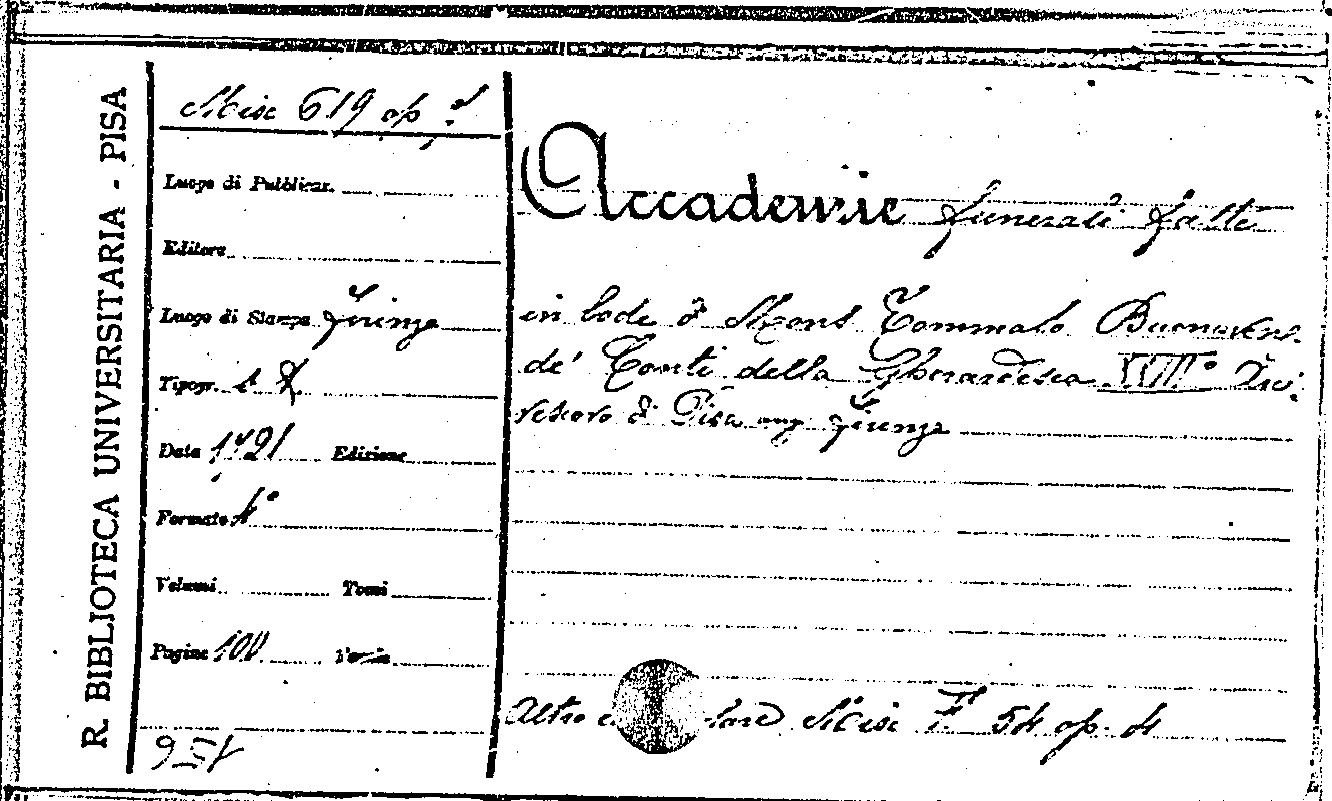 R. BIBLIOTECA UNIVERSITARIA - PISA
Misc 619 op
Luogo di Pubblicaz.
Editore
Luogo di Stampa Firenze
Tipogr.
Data 1721 Edizione
Formato 4°
Volumi Tomi
Pagine 100
156
Accademie funerali fatte
in lode di Mons Tommaso Buonavent.
de' Conti della Gherardesca
di Pisa Firenze
Altro Misc 54 op. 4